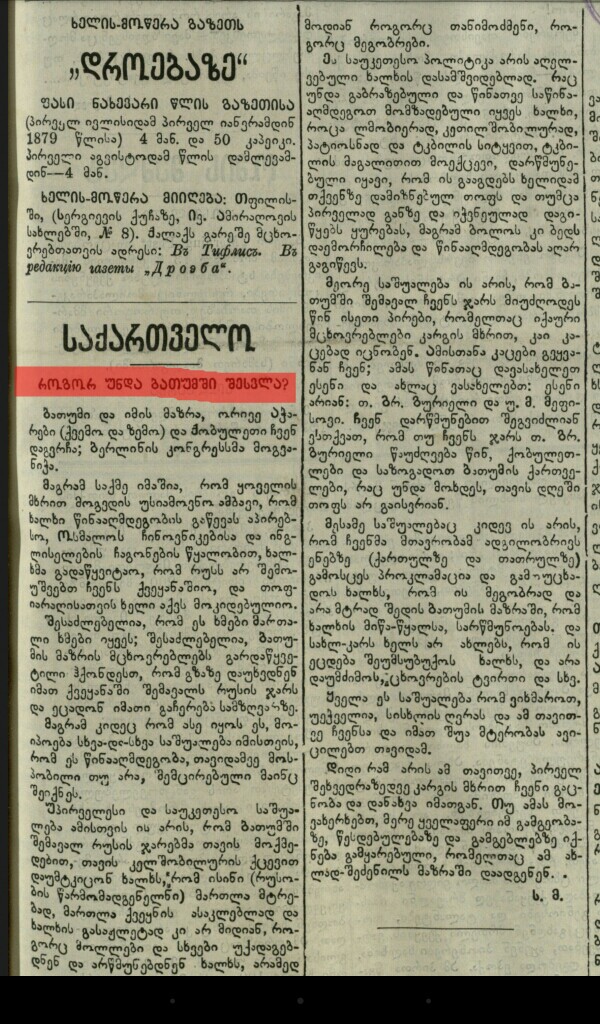 ხელის-მოწერა გაზეთს
„დროებაზე“
ფასი ნახევარი წლის გაზეთისა
(პირველ ივლისიდამ პირველ იანვრამდინ
1879 წლისა) 4 მან. და 50 კაპეიკი.
პირველი აგვისტოდამ წლის დამლევამ-
დინ—4 მან.
ხელის-მოწერა მიიღება: თფილის-
ში, (სერგიევის ქუჩაზე, ივ. ამირაღოვის
სახლებში, № 8). ქალაქს გარეშე მცხოვ-
რებთათვის ადრესი: Въ Тифлисъ. Въ
редакцію газеты „Дроэба“.
საქართველო
როგორ უნდა ბათუმში შესვლა?
ბათუმი და იმის მაზრა, ორივე აჭა-
რები (ქვემო და ზემო) და ქობულეთი ჩვენ
დაგვრჩა; ბერლინის კონგრესსმა მოგვა-
ნიჭა.
მაგრამ საქმე იმაშია, რომ ყოველის
მხრით მოგვდის უსიამოვნო ამბავი, რომ
ხალხი წინააღმდეგობის გაწევას აპირებ-
სო, ოსმალოს ჩინოვნიკებისა და ინგ-
ლისელების ჩაგონების წყალობით, ხალ-
ხმა გადაწყვიტაო, რომ რუსს არ შემო-
უშვებთ ჩვენს ქვეყანაშიო, და თოფ-
იარაღისათვის ხელი აქვს მოკიდებულიო.
შესაძლებელია, რომ ეს ხმები მართა-
ლი ხმები იყვეს; შესაძლებელია, ბათუ-
მის მაზრის მცხოვრებლებს გარდაწყვე-
ტილი ჰქონდესთ, რომ გზაზე დაუხვდნენ
იმათ ქვეყანაში შემავალს რუსის ჯარს
და ეცადონ იმათი გაჩერება სამზღვარზე.
მაგრამ კიდეც რომ ასე იყოს ეს, მო-
იპოება სხვა-და-სხვა საშუალება იმისთვის,
რომ ეს წინააღმდეგობა, თავიდამვე მოს-
პობილი თუ არა, შემცირებული მაინც
შეიქნეს.
უპირველესი და საუკეთესო საშუა-
ლება ამისთვის ის არის, რომ ბათუმში
შემავალ რუსის ჯარებმა თავის მოქმე-
დებით, თავის კეთილშობილურის ქცევით
დაუმტკიცონ ხალხს, რომ ისინი (რუსო-
ბის წარმომადგენელნი) მართლა მტრე-
ბად, მართლა ქვეყნის ასაკლებლად და
ხალხის გასაჟლეტად კი არ მიდიან, რო-
გორც მოლლები და სხვები უქადაგებ-
დნენ და არწმუნებდნენ ხალხს, არამედ
მოდიან როგორც თანიმოძმენი, რო-
გორც მეგობრები.
ეს საუკეთესო პოლიტიკა არის აღელ-
ვებული ხალხის დასამშვიდებლად. რაც
უნდა გაბრაზებული და წინათვე საწინა-
აღმდეგოთ მომზადებული იყვეს ხალხი,
როცა ლმობიერად, კეთილშობილურად,
პატიოსნად და ტკბილის სიტყვით, ტკბი-
ლის მაგალითით მოექცევი, დარწმუნე-
ბული იყავი, რომ ის გააგდებს ხელიდამ
თქვენზე დამიზნებულ თოფს და თუმცა
პირველად განზე და იჭვნეულად დაგი-
წყებს ყურებას, მაგრამ ბოლოს კი ბედს
დაემორჩილება და წინააღმდეგობას აღარ
გაგიწევს.
მეორე საშუალება ის არის, რომ ბა-
თუმში შემავალ ჩვენს ჯარს მიუძღოდეს
წინ ისეთი პირები, რომელთაც იქაური
მცხოვრებლები კარგის მხრით, კაი კა-
ცებად იცნობენ. ამისთანა კაცები გვყვა-
ნან ჩვენ; ამას წინათაც დავასახელეთ
ესენი და ახლაც ვასახელებთ: ესენი
არიან: თ. გრ. გურიელი და უ. მ. მეფი-
სოვი. ჩვენ დარწმუნებით შეგვიძლიან
ვსთქვათ, რომ თუ ჩვენს ჯარს თ. გრ.
გურიელი წაუძღვება წინ, ქობულეთ-
ლები და საზოგადოთ ბათუმის ქართვე-
ლები, რაც უნდა მოხდეს, თავის დღეში
თოფს არ გაისვრიან.
მესამე საშუალებაც კიდევ ის არის,
რომ ჩვენმა მთავრობამ ადგილობრივს
ენებზე (ქართულზე და თათრულზე)
გამოსცეს პროკლამაცია და გამოუცხა-
დოს ხალხს, რომ ის მეგობრად და
არა მტრად შედის ბათუმის მაზრაში, რომ
ხალხის მიწა-წყალსა, სარწმუნოებას. და
სახლ-კარს ხელს არ ახლებს, რომ ის
ეცდება შეუმსუბუქოს ხალხს, და არა
დაუმძიმოს, ცხოვრების ტვირთი და სხვ.
ყველა ეს საშუალება რომ ვიხმაროთ,
უეჭველია, სისხლის ღვრას და ამ თავით-
ვე ჩვენსა და იმათ შუა მტრობას ავი-
ცილებთ თავიდამ.
დიდი რამ არის ამ თავითვე, პირველ
შეხვედრაზედვე კარგის მხრით ჩვენი გაც-
ნობა და დანახვა იმათგან. თუ ამას მო-
ვახერხებთ, მერე ყველაფერი იმ გამგეობა-
ზე, წესდებულებაზე და გამგებლებზე იქ-
ნება გამყარებული, რომელთაც ამ ახ-
ლად-შეძენილს მაზრაში დაადგენენ. .
ს. მ.